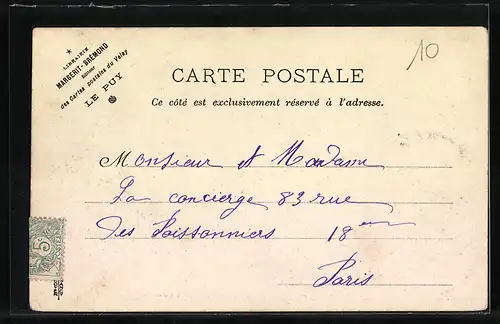 LIBRAIRIE
MARGERIT-BRÉMOND
Éditeur
des Cartes postales du Velay
LE PUY
10
CARTE POSTALE
Ce côté est exclusivement réservé à l'adresse.
Monsieur et Madame
La concierge 83 rue
des Poissonniers 18em
Paris
5
POSTES